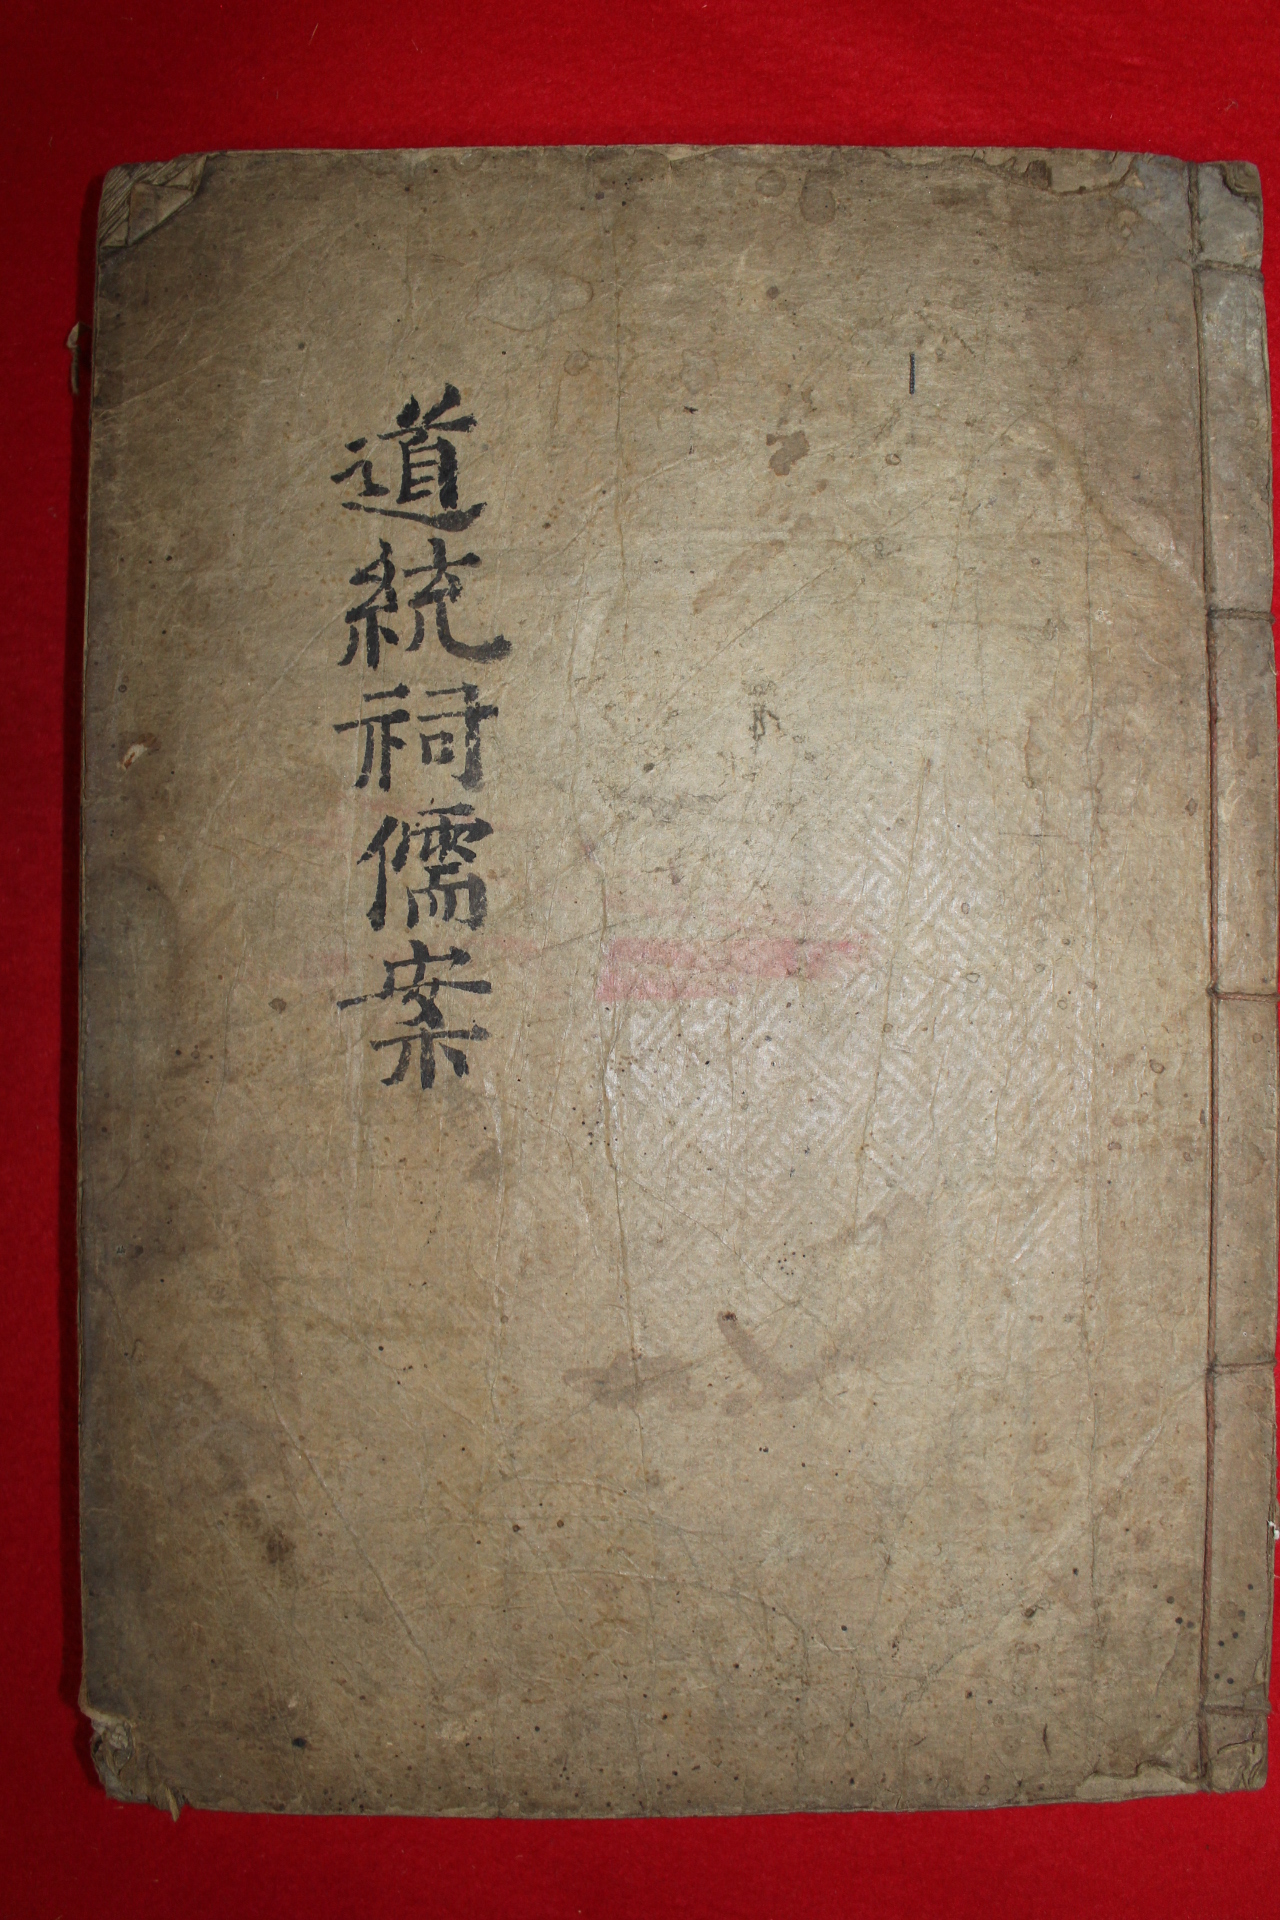 道統祠儒案